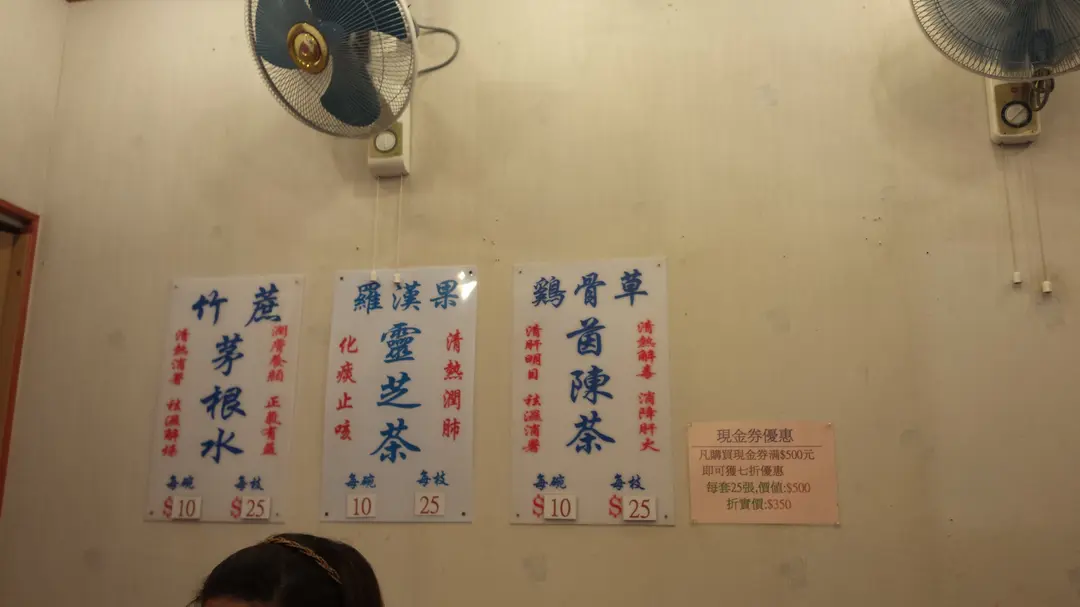 竹蔗
茅根水
潤膚養顏 正氣有益
清熱消暑 祛濕解燥
每碗 每枝
$10 $25
羅漢果
靈芝茶
清熱潤肺
化痰止咳
每碗 每枝
10 25
鷄骨草
茵陳茶
清熱解毒 消降肝火
清肝明目 祛濕消暑
每碗 每枝
$10 $25
現金券優惠
凡購買現金券滿$500元
即可獲七折優惠
每套25張,價值:$500
折實價:$350